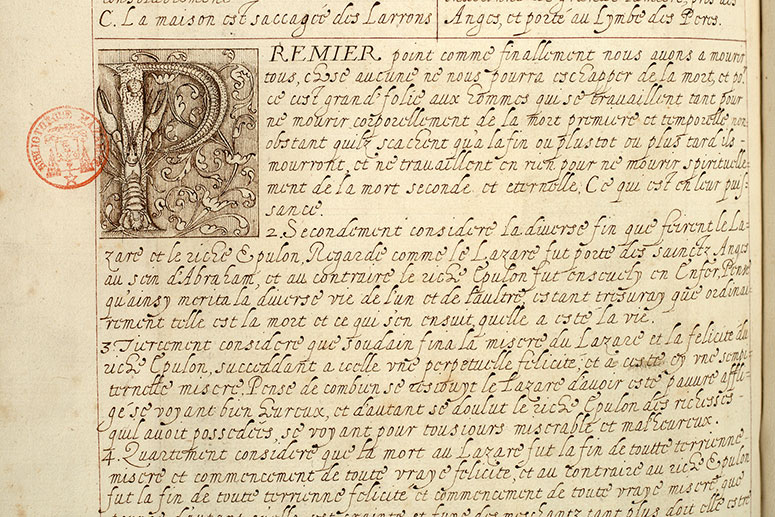 C. La maison est saccagée des Larrons
Anges, et porté au Lymbe des Peres.
PREMIER point comme finallement nous avons a mourir
tous, chose aucune ne nous pourra eschapper de la mort, et po.r
ce cest grand folie aux hommes qui se travaillent tant pour
ne mourir corporellement de la mort premiere et temporelle non
obstant quilz scachent qua la fin ou plustot ou plus tard ils
mourront, et ne travaillent en rien pour ne mourir spirituelle-
ment de la mort seconde et eternelle, Ce qui est en leur puis-
sance.
2. Secondement considere la diverse fin que feirent le La-
zare et le riche Epulon, Regarde comme le Lazare fut porte des sainctz Anges
au sein d'Abraham, et au contraire le riche Epulon fut ensevely en Enfer, Pense
qu'ainsy merita la diverse vie de l'un et de l'aultre, estant tresvray que ordinai-
rement telle est la mort et ce qui s'en ensuit, quelle a este la vie.
3. Tiercement considere que soudain fina la misere du Lazare et la felicite du
riche Epulon, succeddant a icelle vne perpetuelle felicite, et a ceste cy vne sempi-
ternelle misere, Pense de combien se resiouyt le Lazare d'avoir este pauvre affli-
gé se voyant bien hureux, et d'autant se doulut le riche Epulon des richesses
quil avoit possedées, se voyant pour tousiours miserable et malheureux.
4. Quartement considere que la mort au Lazare fut la fin de toutte terrienne
misere et commencement de toute vraye felicité, et au contraire au riche Epulon
fut la fin de toute terrienne felicite et commencement de toute vraye misere, que
BIBLIOTHEQUE